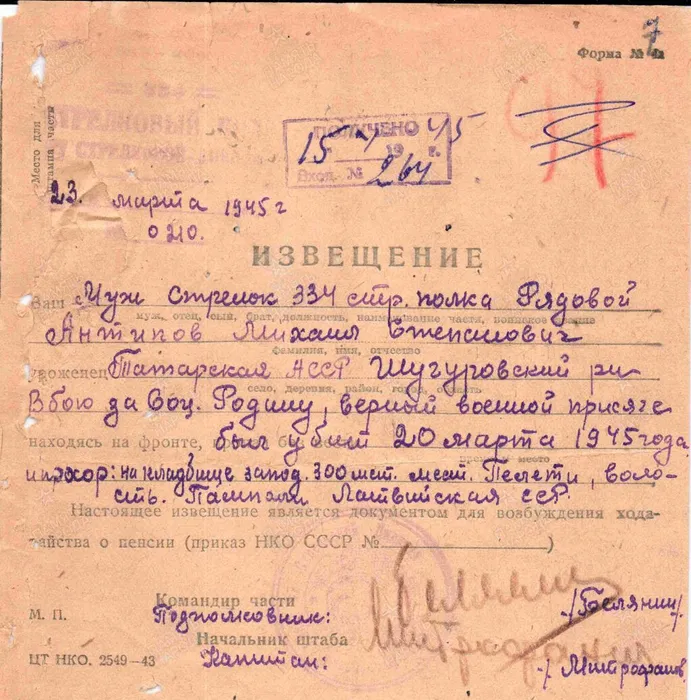 7
Форма № 4а
Место для
штампа части
СТРЕЛКОВЫЙ
ПОЛУЧЕНО
15 19 45 г.
Вход. № 264
23 марта 1945 г
0210.
ИЗВЕЩЕНИЕ
Ваш Муж стрелок 334 стр. полка Рядовой
муж, отец, сын, брат, должность, наименование части, воинское звание
Антипов Михаил Степанович
фамилия, имя, отчество
уроженец Татарская АССР Шугуровский р-н
село, деревня, район, город, область
В бою за Соц. Родину, верный военной присяге
находясь на фронте, был убит 20 марта 1945 года
место
и похор: на кладбище запад. 300 мет. мест. Пелети, воло-
сть. Пампали Латвийская ССР
Настоящее извещение является документом для возбуждения хода-
тайства о пенсии (приказ НКО СССР № )
Командир части
М. П. Подполковник: /Белянин/
Начальник штаба
ЦТ НКО. 2549—43 Капитан: /Митрофанов